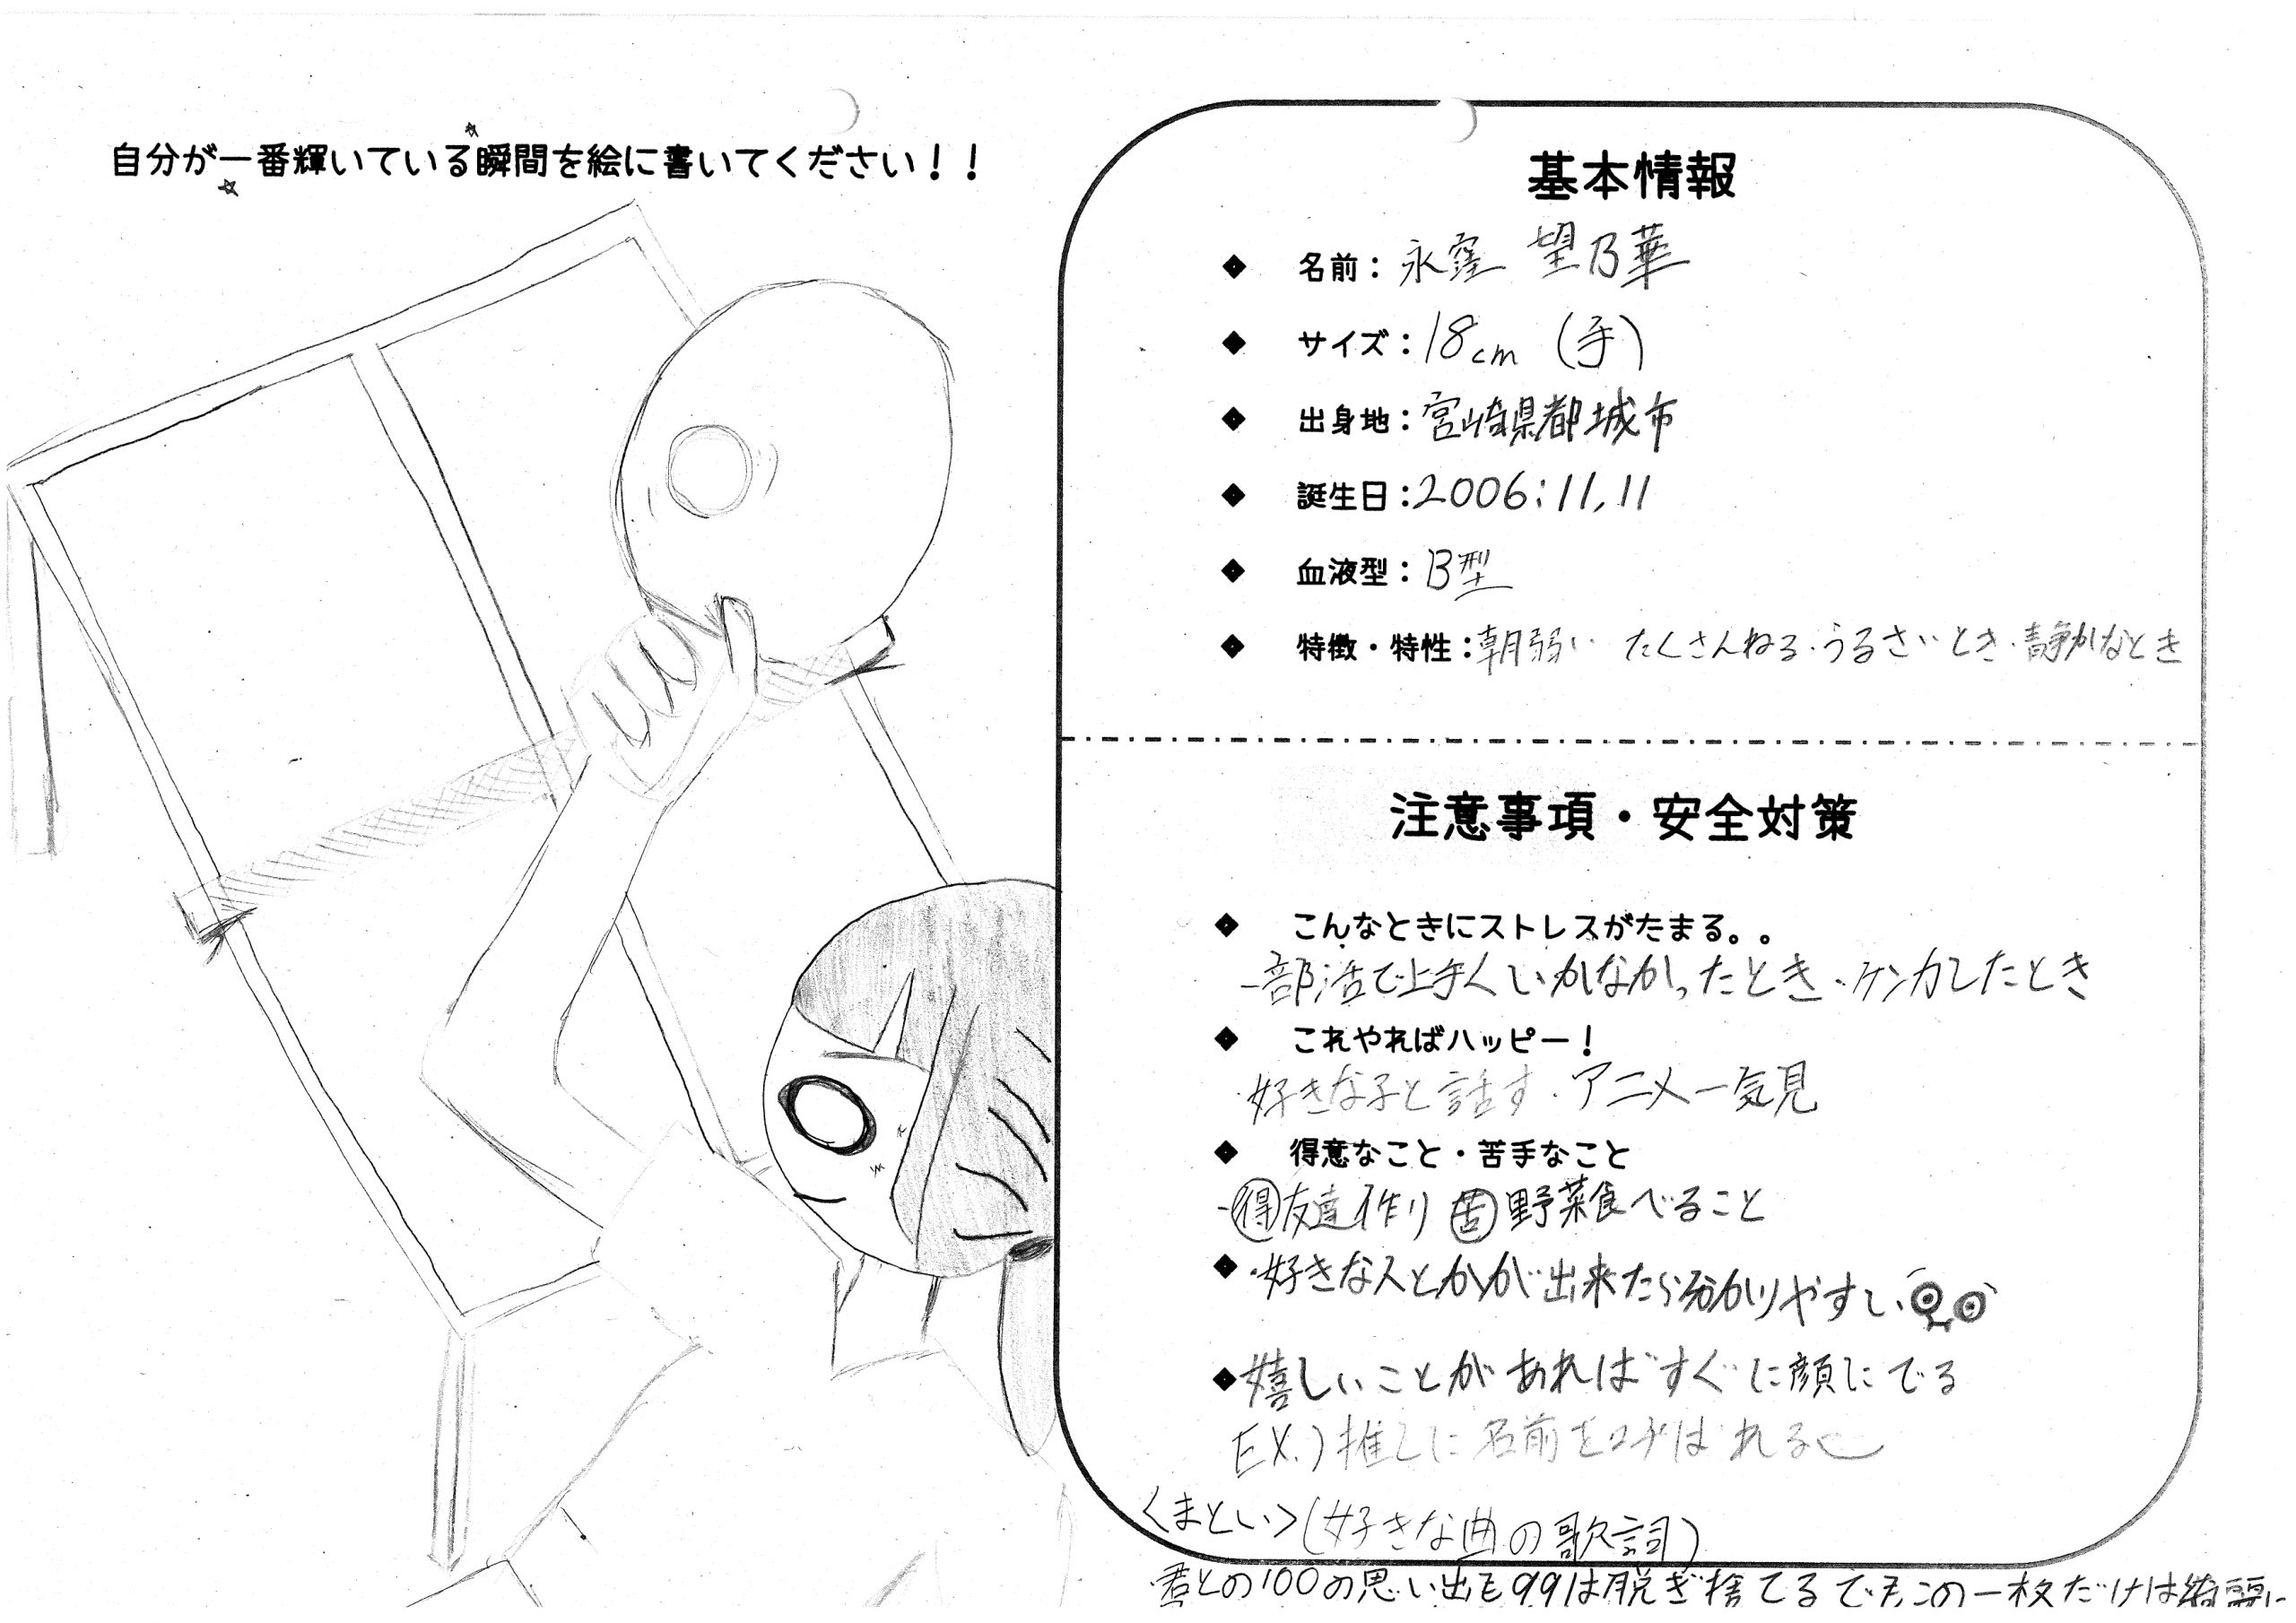 自分が一番輝いている瞬間を絵に書いてください！！
基本情報
◆ 名前：永窪 望乃華
◆ サイズ：18cm (手)
◆ 出身地：宮崎県都城市
◆ 誕生日：2006:11,11
◆ 血液型：B型
◆ 特徴・特性：朝弱い たくさんねる・うるさいとき・静かなとき
注意事項・安全対策
◆ こんなときにストレスがたまる。。
-部活で上手くいかなかったとき・ケンカしたとき
◆ これやればハッピー！
・好きな子と話す・アニメ一気見
◆ 得意なこと・苦手なこと
-㊝友達作り ㊟野菜食べること
◆ ・好きな人とかが出来たら分かりやすい
◆ 嬉しいことがあればすぐに顔にでる
EX.) 推しに名前をよばれる
<まとい>(好きな曲の歌詞)
君との100の思い出も99は脱ぎ捨てるでもこの一枚だけは綺麗に